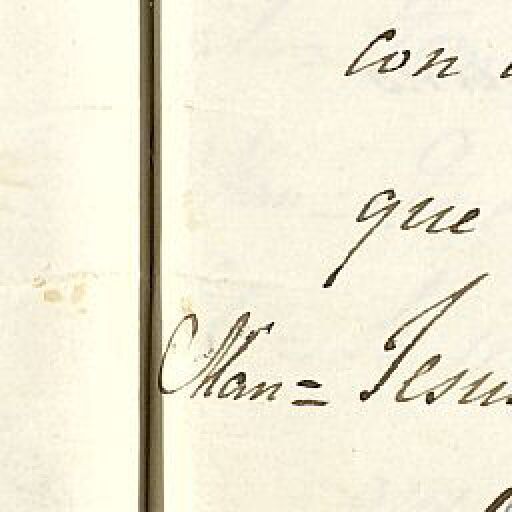 con
que
Man= Jesu